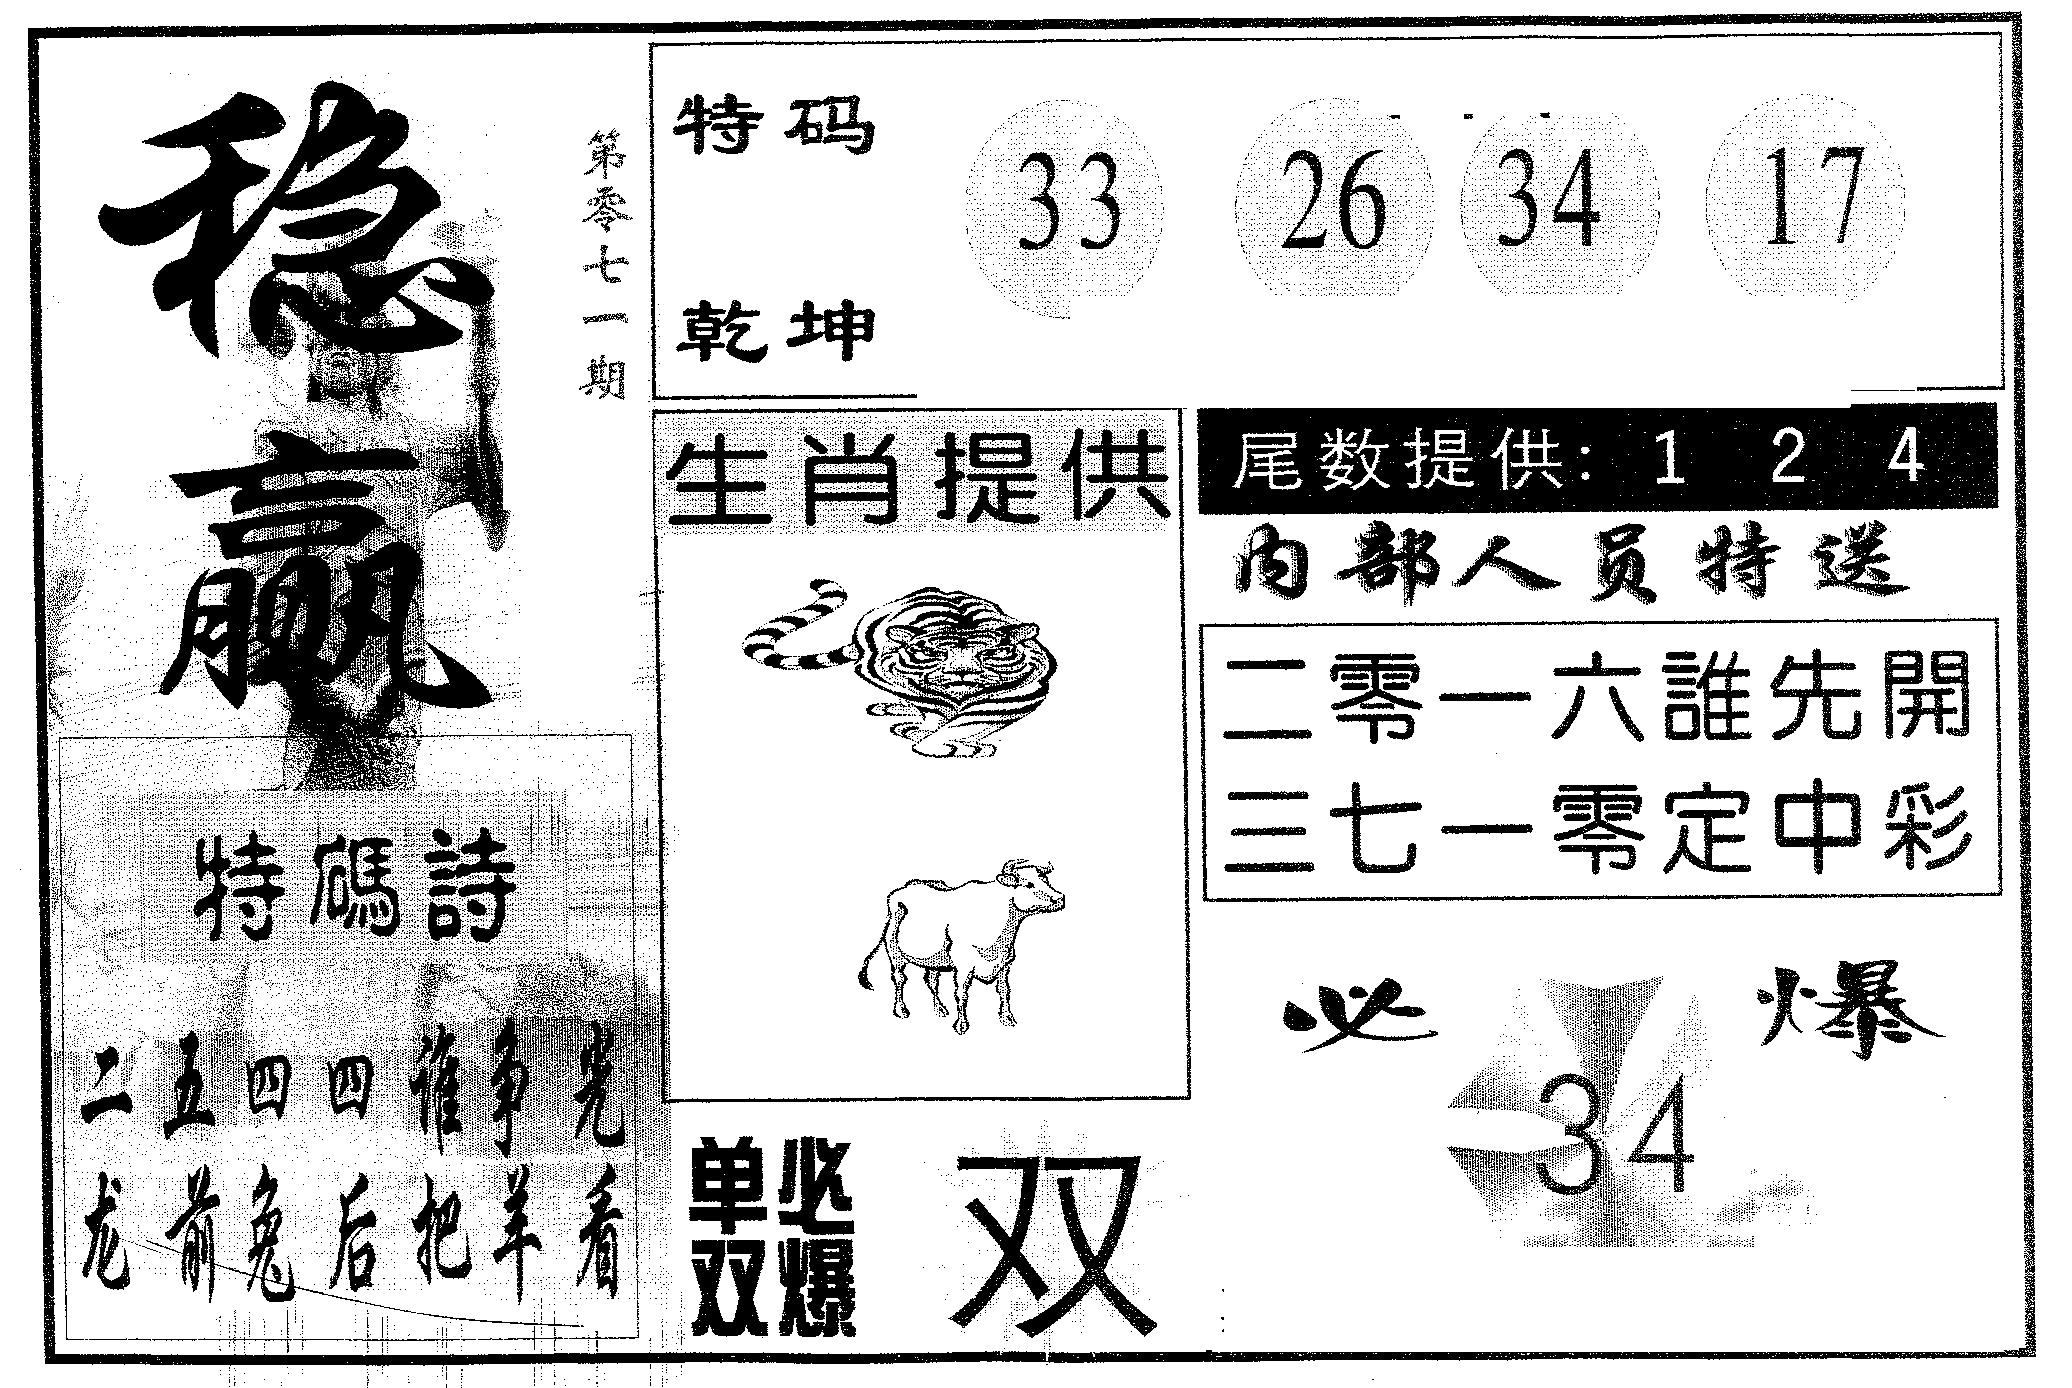 稳赢
第零七一期
特码 33 26 34 17
乾坤
生肖提供
尾数提供: 1 2 4
内部人员特送
二零一六誰先開
三七一零定中彩
必爆
34
特碼詩
二五四四谁争光
龙前兔后把羊看
单双
必爆
双